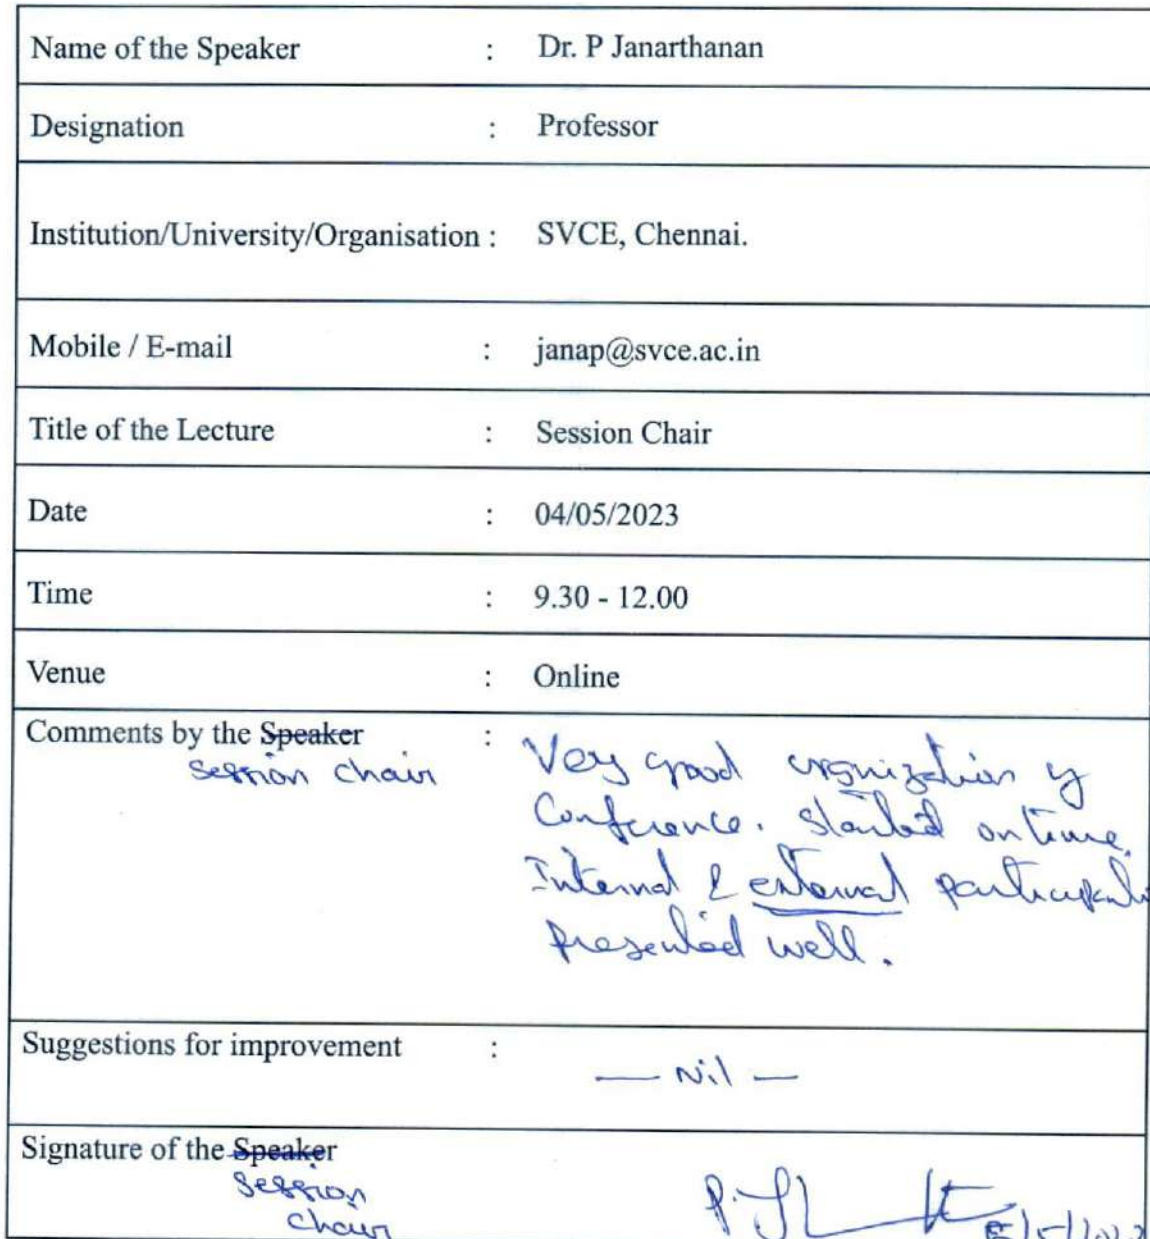 Name of the Speaker : Dr. P Janarthanan
Designation : Professor
Institution/University/Organisation : SVCE, Chennai.
Mobile / E-mail : janap@svce.ac.in
Title of the Lecture : Session Chair
Date : 04/05/2023
Time : 9.30 - 12.00
Venue : Online
Comments by the Speaker :
Session chair
Very good orgnization of
Conference. Started on time.
Internal & external participants
presented well.
Suggestions for improvement :
— Nil —
Signature of the Speaker
Session
chair